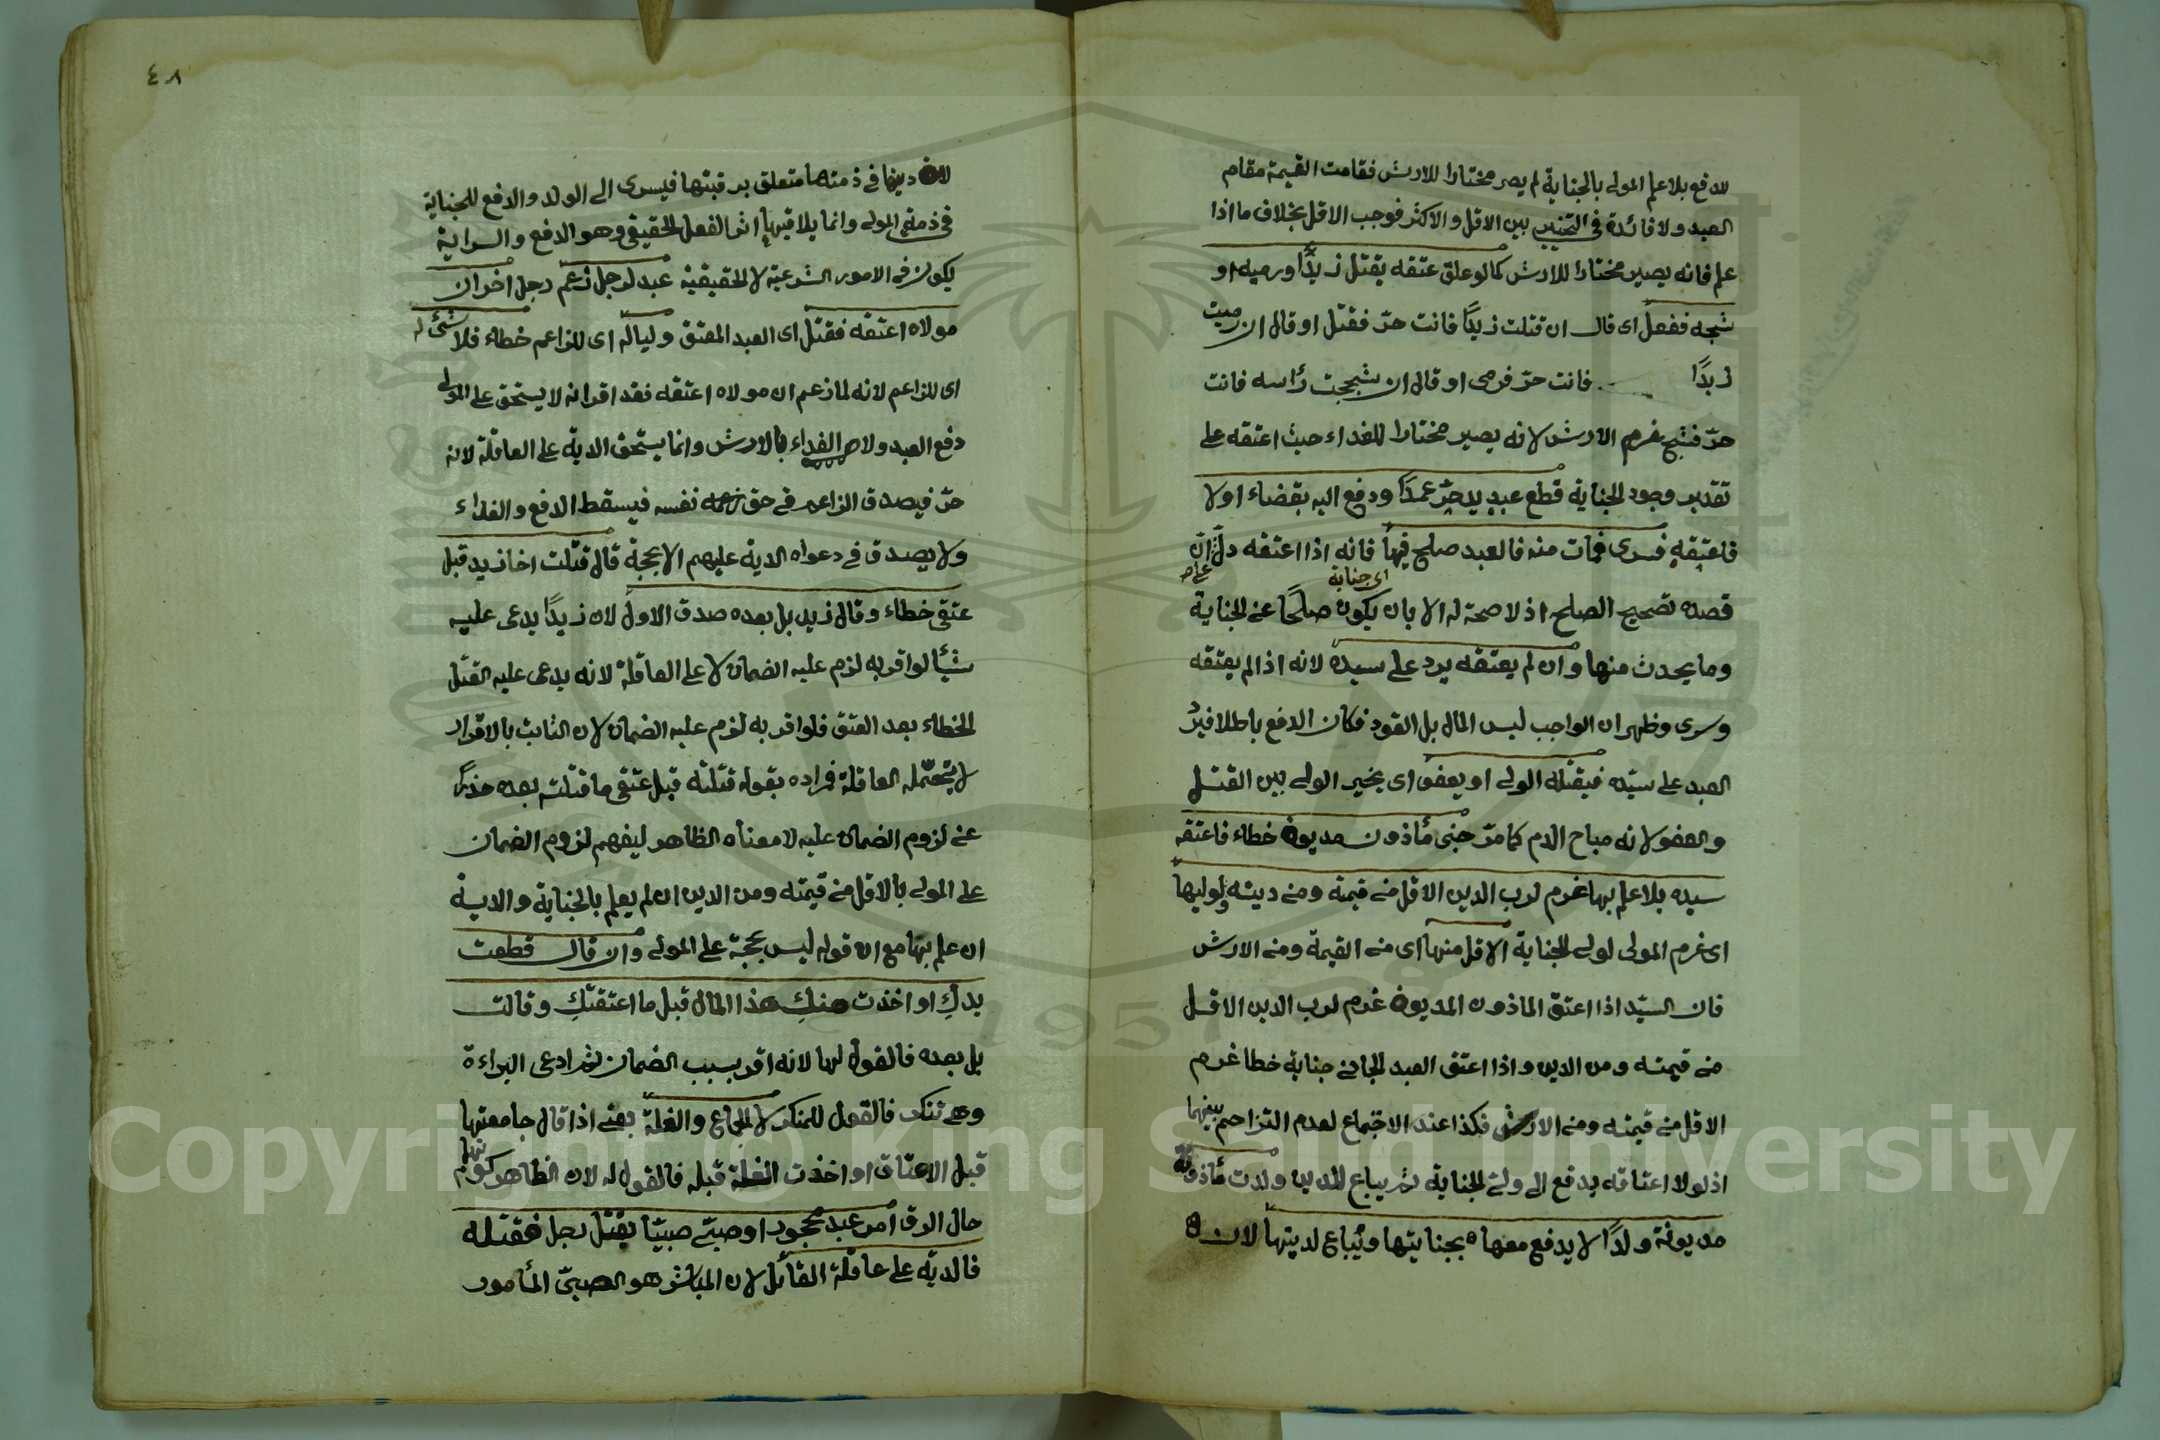 للدفع بلا علم المولى بالجناية لم يصر مختارا للارش فقامت القيمة مقام
العبد ولا فائدة فى التخيير بين الاقل والاكثر فوجب الاقل بخلاف ما اذا
علم فانه يصير مختارا للارش كما لو علق عتقه بقتل زيدًا ورميه او
شجه ففعل اى قال ان قتلت زيدًا فانت حرّ فقتل او قال ان رميت
زيدًا فانت حرّ فرمى او قال ان شججت رأسه فانت
حرّ فشج غرم الارش لانه يصير مختارا للفداء حيث اعتقه على
تقدير وجود الجناية قطع عبد يد حرّ عمدًا ودفع اليه بقضاء او لا
فاعتقه فسرى فمات منه فالعبد صلح فيها فانه اذا اعتقه دلّ ان
اى جناية
على
قصده تصحيح الصلح اذ لا صحة له الا بان يكون صلحًا عن الجناية
وما يحدث منها وان لم يعتقه يرد على سيده لانه اذا لم يعتقه
وسرى وظهر ان الواجب ليس المال بل القود فكان الدفع باطلا فيردّ
العبد على سيّده فيقتله الولى او يعفو اى يخير الولى بين القتل
والعفو لانه مباح الدم كما مرّ جنى مأذون مديون خطاء فاعتقه
سيده بلا علم بها غرم لرب الدين الاقل من قيمته ومن دينه ولوليها
اى غرم المولى لولى الجناية الاقل منها اى من القيمة ومن الارش
فان السيّد اذا اعتق الماذون المديون غرم لرب الدين الاقل
من قيمته ومن الدين واذا اعتق العبد الجانى جناية خطا غرم
الاقل من قيمته ومن الارش فكذا عند الاجتماع لعدم التزاحم بينهما
اذ لولا اعتاقه يدفع الى ولىّ الجناية ثم يباع للدين ولدت مأذونة
مديونة ولدًا لا يدفع معها بجنايتها ويُباع لدينها لان
٤٨
لان دينها فى ذمتها متعلق برقبتها فيسرى الى الولد والدفع للجناية
فى ذمة المولى وانما يلاقيها اثر الفعل الحقيقى وهو الدفع والسراية
يكون فى الامور الشرعية لا الحقيقية عبد لرجل زعم رجل اخر ان
مولاه اعتقه فقتل اى العبد المعتق وليا له اى للزاعم خطاء فلا شئ له
اى للزاعم لانه لما زعم ان مولاه اعتقه فقد اقر انه لا يستحق على المولى
دفع العبد ولا الفداء بالارش وانما يستحق الدية على العاقلة لانه
حرّ فيصدق الزاعم فى حق نفسه فيسقط الدفع والفداء
ولا يصدق فى دعواه الدية عليهم الا بحجة قال قتلت اخا زيد قبل
عتقى خطاء وقال زيد بل بعده صدق الاول لان زيدًا يدعى عليه
شيأ لو اقر به لزم عليه الضمان لا على العاقلة لانه يدعى عليه القتل
الخطاء بعد العتق فلو اقر به لزم عليه الضمان لان الثابت بالاقرار
لا يتحمّله العاقلة فمراده بقوله قتلته قبل عتقى ما قتلته بعده حذرًا
عن لزوم الضمان عليه لا معناه الظاهر ليفهم لزوم الضمان
على المولى بالاقل من قيمته ومن الدين ان لم يعلم بالجناية والدية
ان علم بها مع ان قوله ليس بحجة على المولى وان قال قطعت
يدكِ او اخذت منكِ هذا المال قبل ما اعتقتكِ وقالت
بل بعده فالقول لها لانه اقر بسبب الضمان ثم ادعى البراءة
وهى تنكر فالقول للمنكر لا الجماع والغلة يعنى اذا قال جامعتها
قبل الاعتاق او اخذت الغلة قبله فالقول له لان الظاهر كونهما
حال الرق امر عبد محجور او صبىّ صبيّا بقتل رجل فقتله
فالدية على عاقلة القاتل لان المباشر هو الصبىّ المأمور